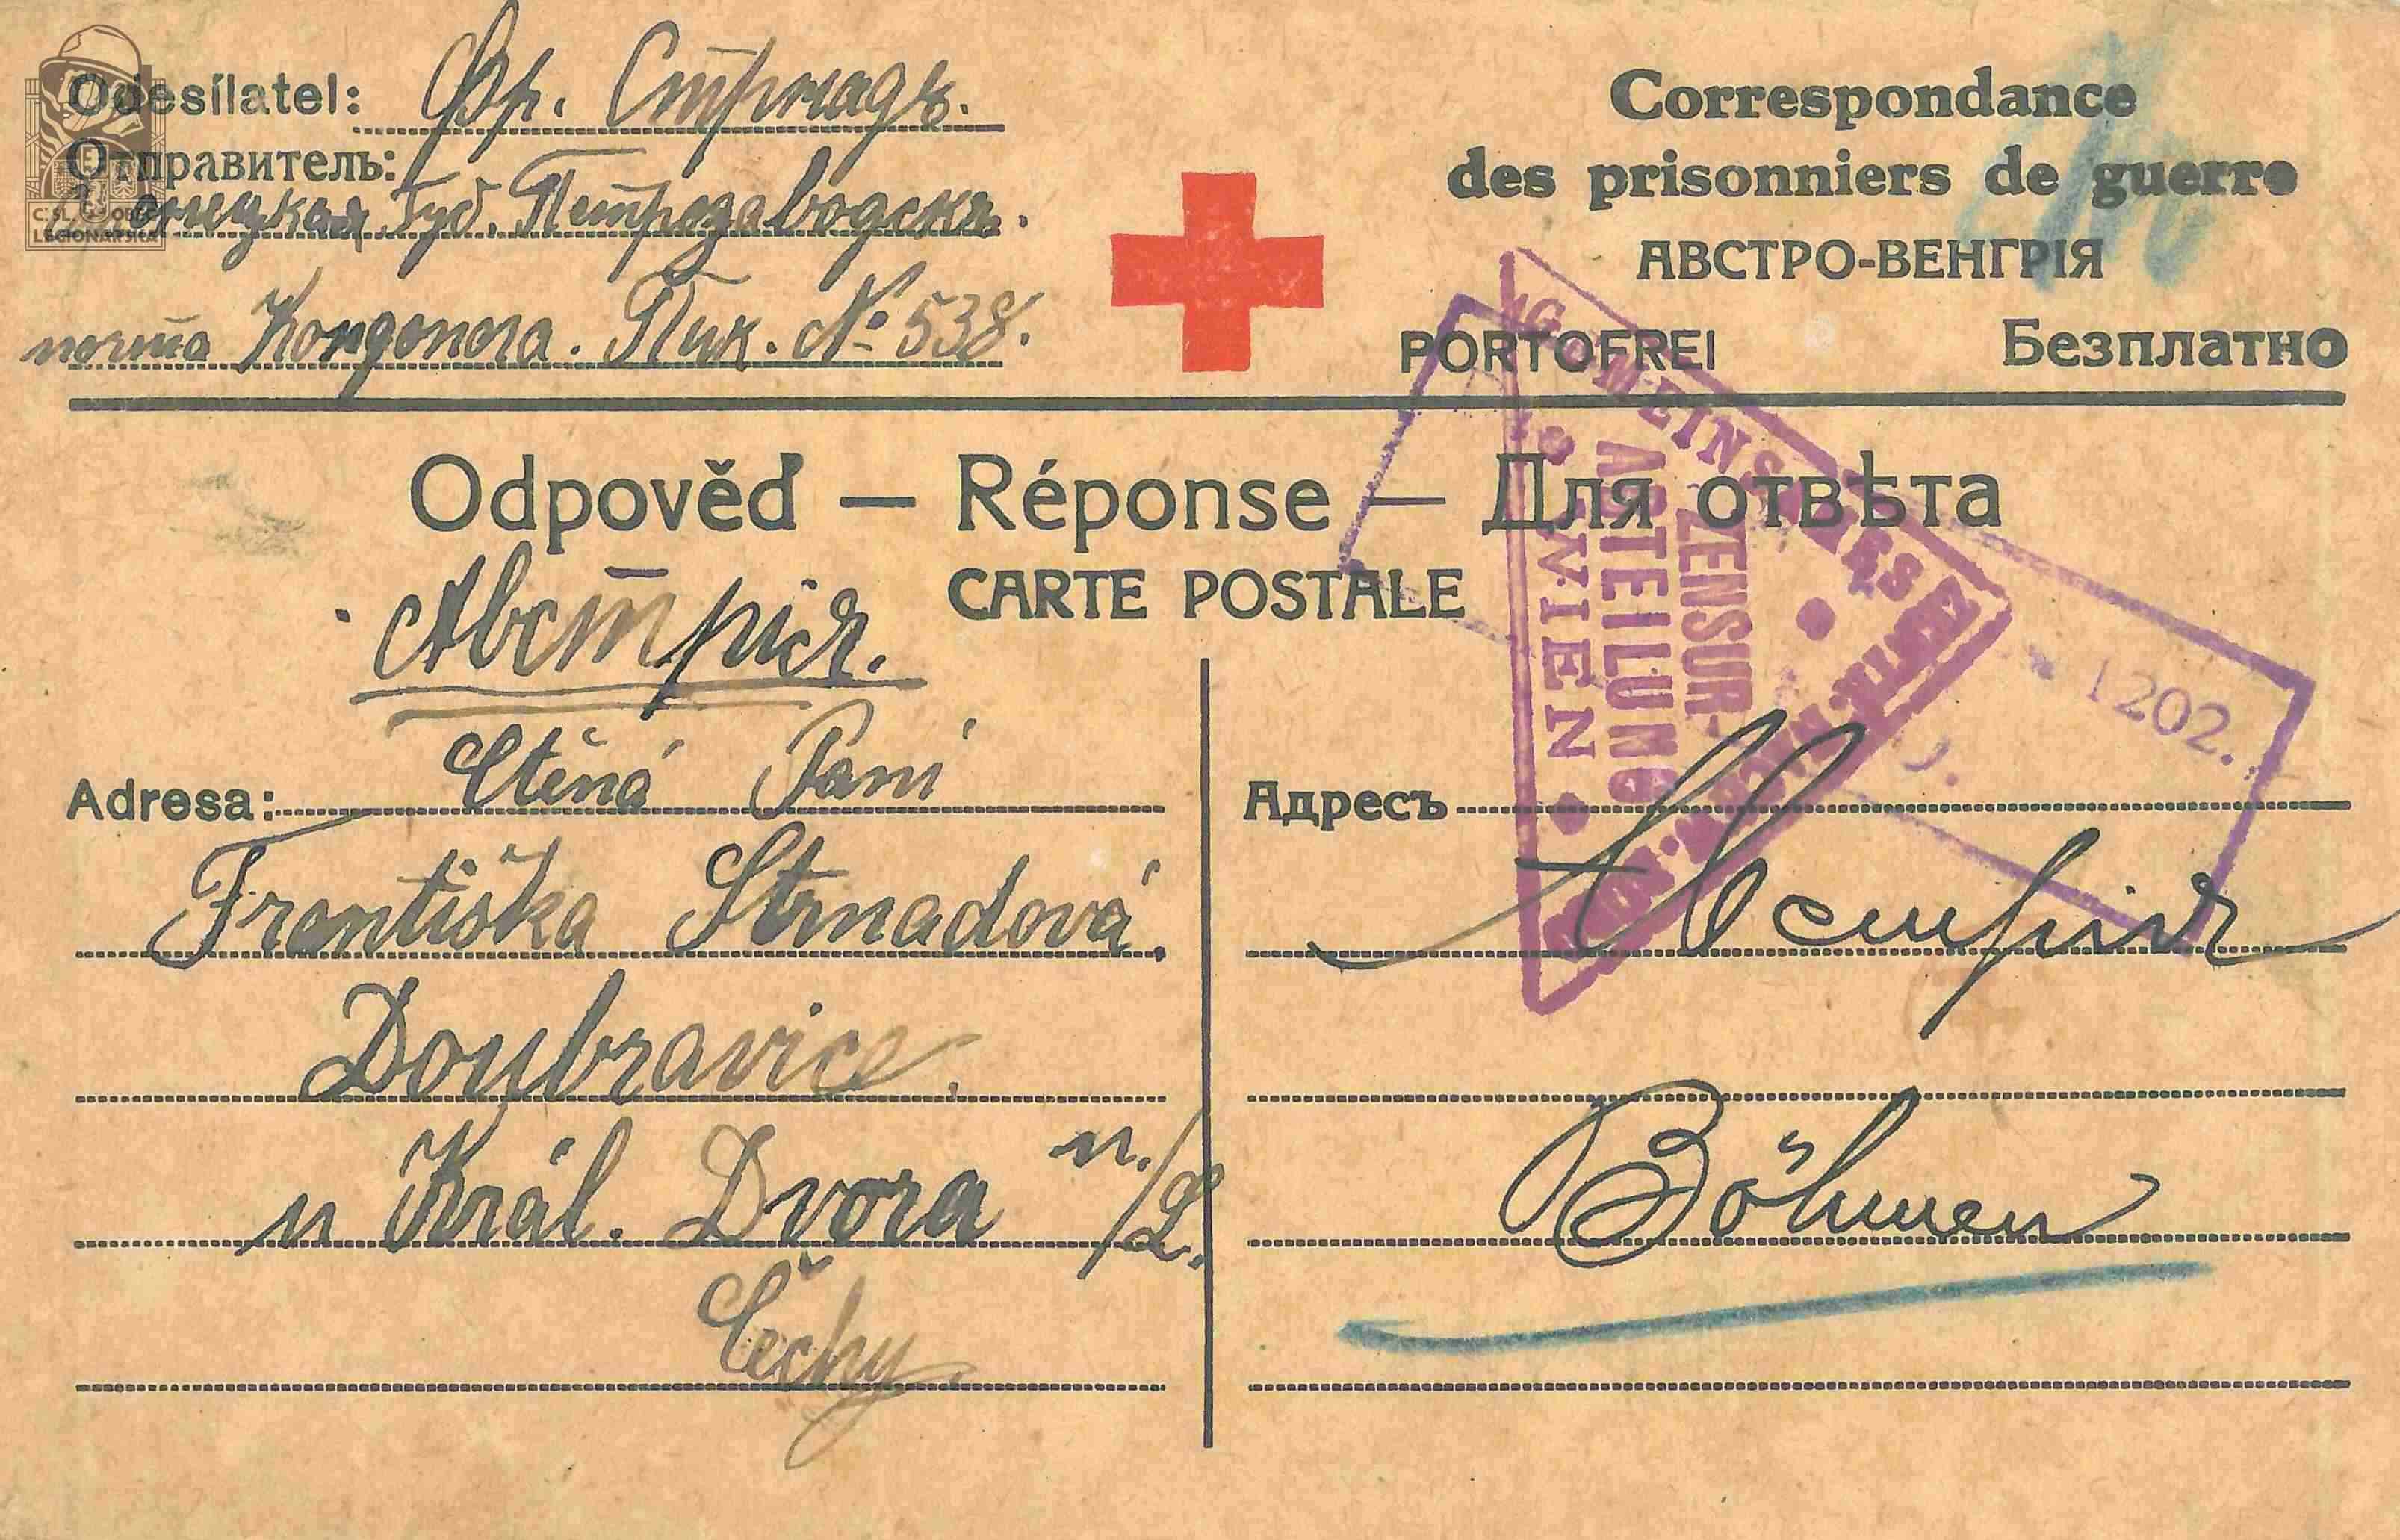 Odesílatel: Фр. Стрнадъ.
Отправитель:
Губ. Петрозаводскъ.
почта Кондопога. Пик. № 538.
Correspondance
des prisonniers de guerre
АВСТРО-ВЕНГРІЯ
PORTOFREI Безплатно
Odpověď — Réponse — Для отвѣта
CARTE POSTALE
Австрія.
Adresa: Ctěná Paní
Františka Strnadová.
Doubravice.
u Král. Dvora n./L.
Čechy.
Адресъ
Австрія
Böhmen
ZENSUR-
ABTEILUNG
WIEN
1202.
LEGIONÁŘSKÁ